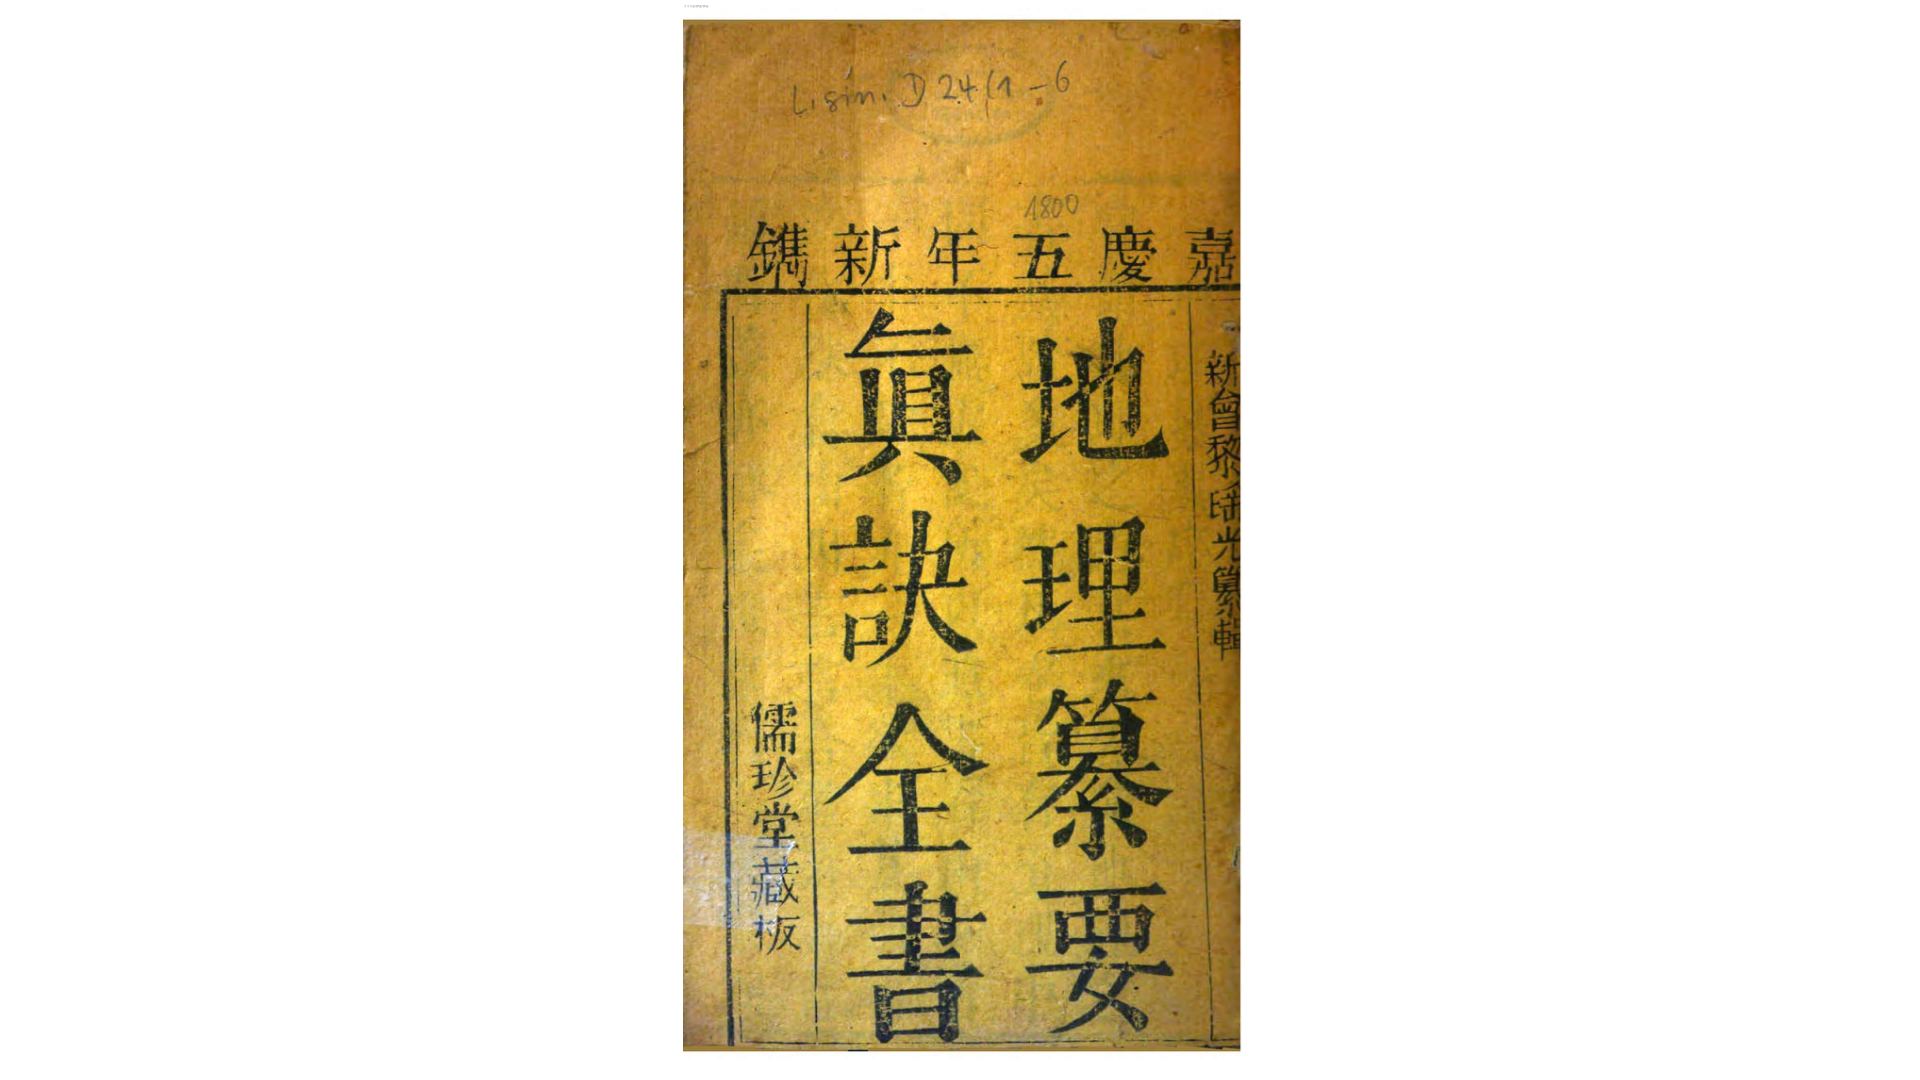 L. sin. D 24/1-6
1800
嘉慶五年新鐫
新會黎
光纂輯
地理纂要
眞訣全書
儒珍堂藏板